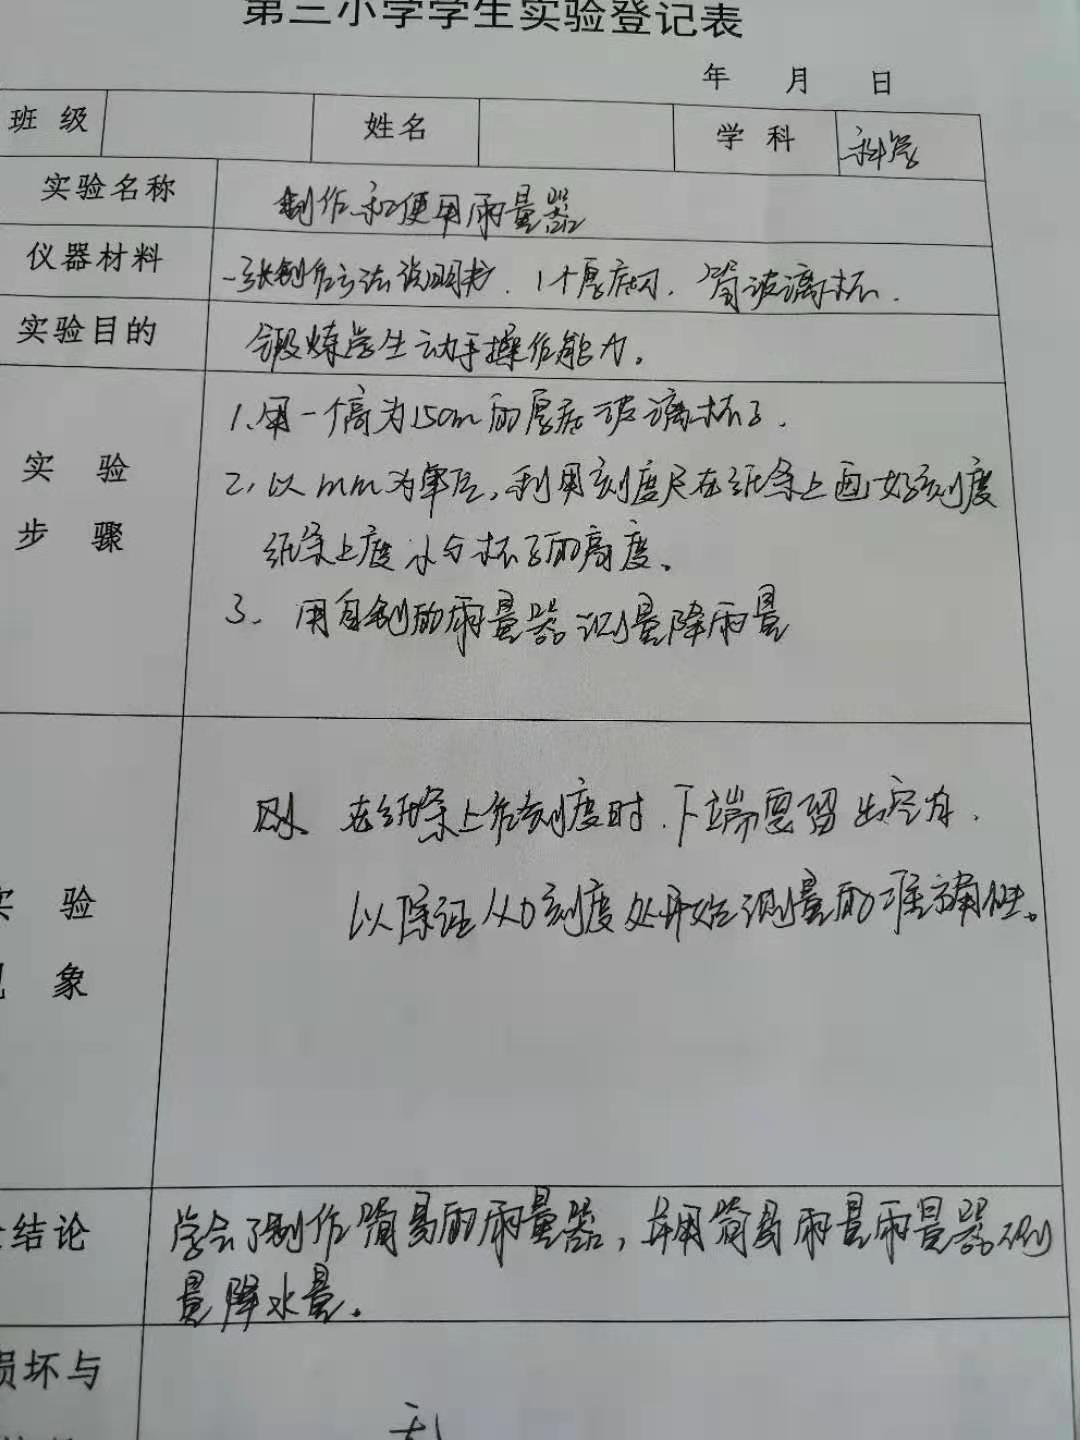 第三小学学生实验登记表
年 月 日
班级 姓名 学科 科学
实验名称 制作和使用雨量器
仪器材料 一张制作方法说明书、1个厚底 筒玻璃杯.
实验目的 锻炼学生动手操作能力。
1.用一个高为15cm的厚底玻璃杯子.
实验 2.以mm为单位,利用刻度尺在纸条上画好刻度
步骤 纸条上度 杯子的高度。
3、用自制的雨量器测量降雨量
在纸条上作刻度时.下端要留出空白.
实验 以保证从0刻度处开始测量的准确性。
现象
结论 学会了制作简易的雨量器,并用简易雨量雨量器测
量降水量。
损坏与
无